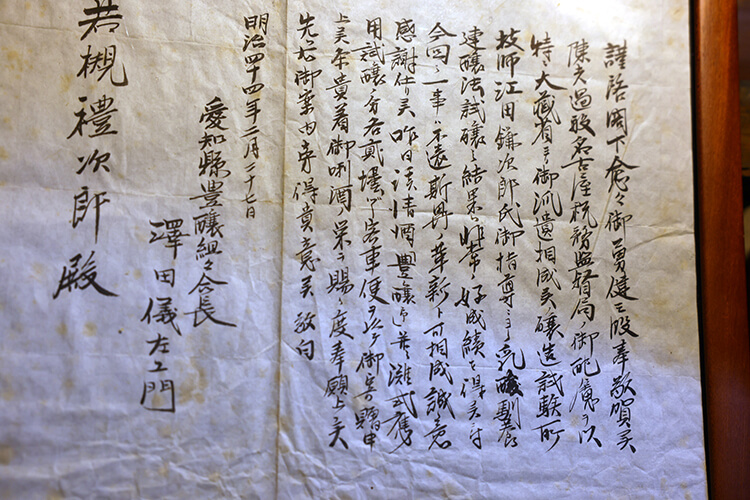 謹啓閣下愈々御勇健ニ被為奉敬賀候
陳者過般名古屋税務監督局ノ御配慮ヲ以
特ニ大蔵省ヨリ御派遣相成候醸造試験所
技師江田鎌次郎氏御指導ニヨリ乳酸馴養
速醸法試醸之結果非常ノ好成績ヲ得候
今回ノ一事ハ不遠斯界ノ革新ト可相成誠ニ
感謝仕リ候昨日該清酒豊醸并ニ灘式
用試醸分各貳壜ツヽ客車便ヲ以テ御寄贈申
上候条貴着御唎酒ノ栄ヲ賜リ度奉願上候
先ハ右御案内旁得貴意候敬白
明治四十四年二月二十七日
愛知縣豊醸組合々長
澤田儀左エ門
若槻禮次郎殿